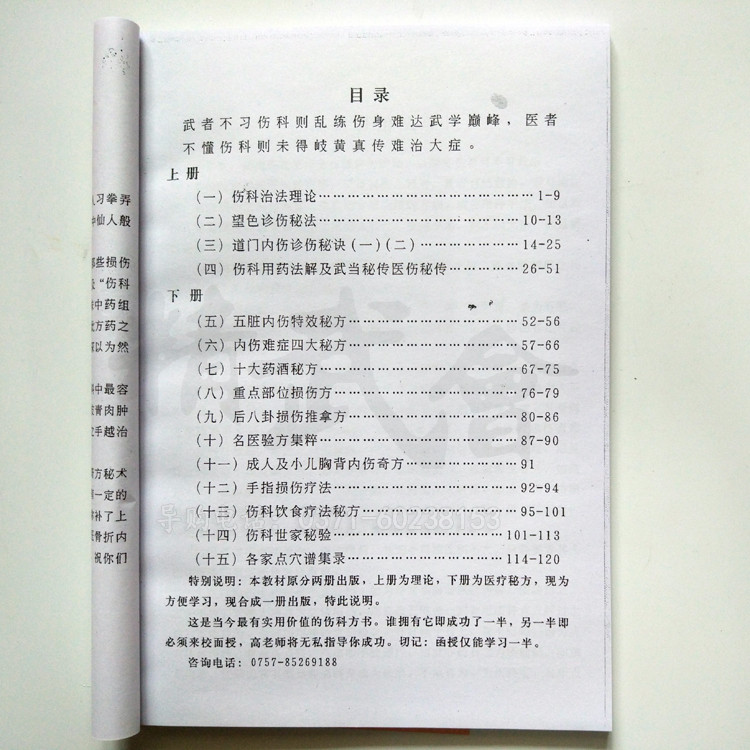 目录
武者不习伤科则乱练伤身难达武学巅峰，医者
不懂伤科则未得岐黄真传难治大症。
上册
（一）伤科治法理论……………………………1-9
（二）望色诊伤秘法……………………………10-13
（三）道门内伤诊伤秘诀(一)(二)………………14-25
（四）伤科用药法解及武当秘传医伤秘传…………26-51
下册
（五）五脏内伤特效秘方………………………52-56
（六）内伤难症四大秘方………………………57-66
（七）十大药酒秘方……………………………67-75
（八）重点部位损伤方…………………………76-79
（九）后八卦损伤推拿方………………………80-86
（十）名医验方集粹……………………………87-90
（十一）成人及小儿胸背内伤奇方………………91
（十二）手指损伤疗法…………………………92-94
（十三）伤科饮食疗法秘方……………………95-101
（十四）伤科世家秘验…………………………101-113
（十五）各家点穴谱集录………………………114-120
特别说明：本教材原分两册出版，上册为理论，下册为医疗秘方，现为
方便学习，现合成一册出版，特此说明。
这是当今最有实用价值的伤科方书。谁拥有它即成功了一半，另一半即
必须来校面授，高老师将无私指导你成功。切记：函授仅能学习一半。
咨询电话：0757-85269188
习拳弄
仙人般
那些损伤
“伤科
中药组
方药之
以为然
中最容
青肉肿
手越治
方秘术
一定的
补了上
骨折内
祝你们
精武會
导购电话：0371-60238153